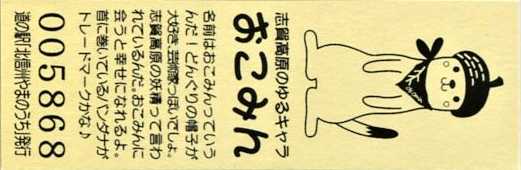 志賀高原のゆるキャラ
おこみん
名前はおこみんっていう
んだ！どんぐりの帽子が
大好き。芸術家っぽいでしょ。
志賀高原の妖精って言わ
れているんだ。おこみんに
会うと幸せになれるよ。
首に巻いているバンダナが
トレードマークかな♪
005868
道の駅「北信州やまのうち」発行